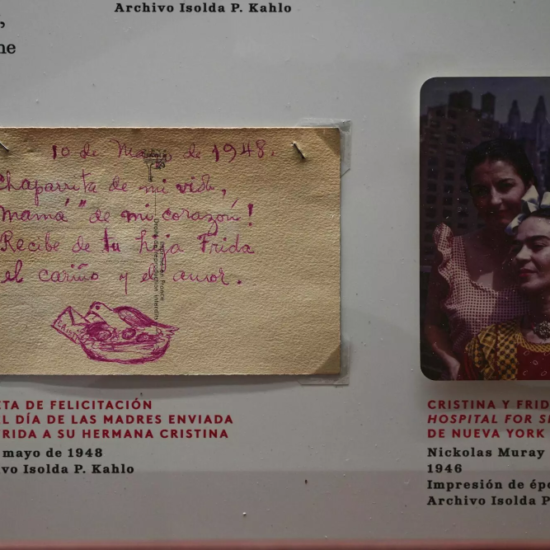 Archivo Isolda P. Kahlo
10 de Mayo de 1948.
Chaparrita de mi vida,
"Mamá" de mi corazón!
Recibe de tu hija Frida
el cariño y el amor.
ETA DE FELICITACIÓN
L DÍA DE LAS MADRES ENVIADA
RIDA A SU HERMANA CRISTINA
mayo de 1948
vo Isolda P. Kahlo
CRISTINA Y FRID
HOSPITAL FOR S
DE NUEVA YORK
Nickolas Muray
1946
Impresión de épo
Archivo Isolda P